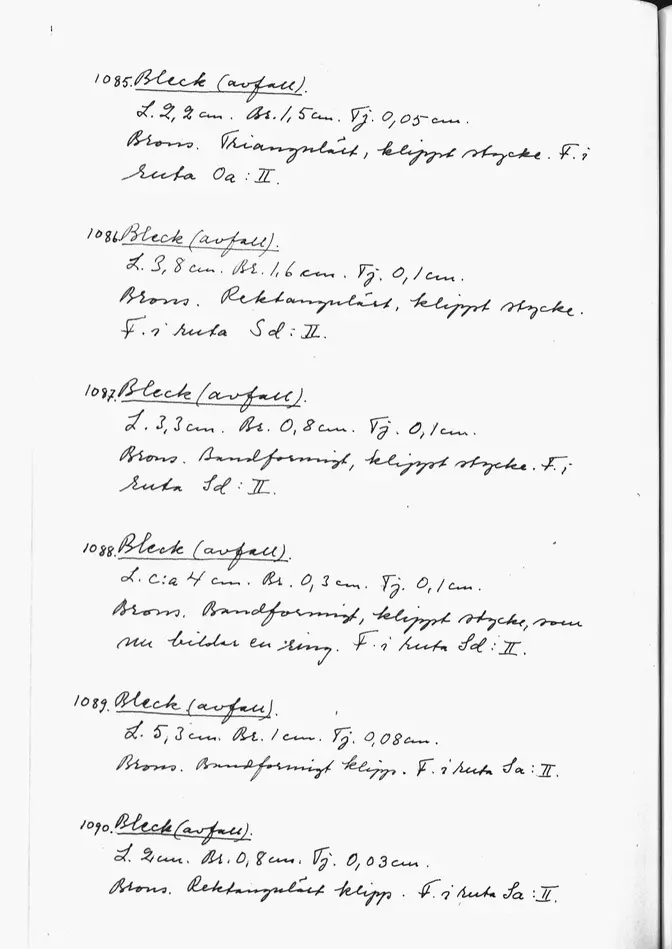 1085. Bleck (avfall).
L. 2,2 cm. Br. 1,5 cm. Tj. 0,05 cm.
Brons. Triangulärt, klippt stycke. F. i
ruta Oa : II.
1086. Bleck (avfall).
L. 3,8 cm. Br. 1,6 cm. Tj. 0,1 cm.
Brons. Rektangulärt, klippt stycke.
F. i ruta Sd : II.
1087. Bleck (avfall).
L. 3,3 cm. Br. 0,8 cm. Tj. 0,1 cm.
Brons. Bandformigt, klippt stycke. F. i
ruta Sd : II.
1088. Bleck (avfall).
L. c:a 4 cm. Br. 0,3 cm. Tj. 0,1 cm.
Brons. Bandformigt, klippt stycke, som
nu bildar en ring. F. i ruta Sd : II.
1089. Bleck (avfall).
L. 5,3 cm. Br. 1 cm. Tj. 0,08 cm.
Brons. Bandformigt klipp. F. i ruta Sa : II.
1090. Bleck (avfall).
L. 2 cm. Br. 0,8 cm. Tj. 0,03 cm.
Brons. Rektangulärt klipp. F. i ruta Sa : II.